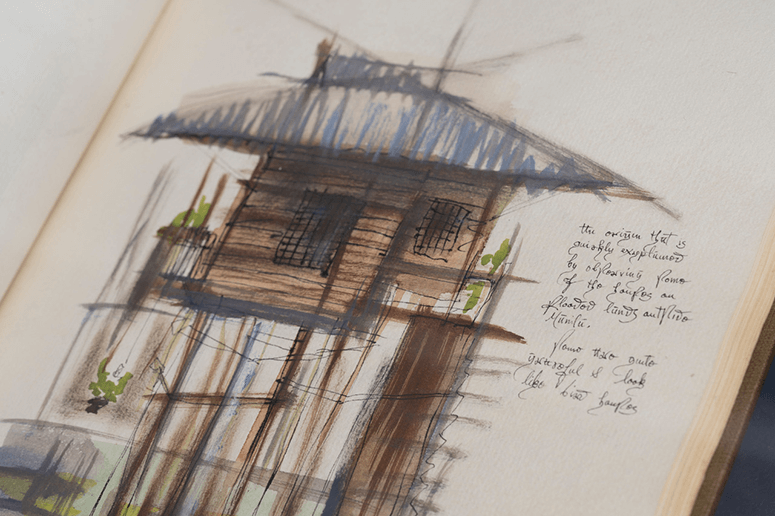 the origin that is
quickly explained
by observing some
of the houses on
flooded lands outside
Manila.
Some are quite
& look
like bird houses